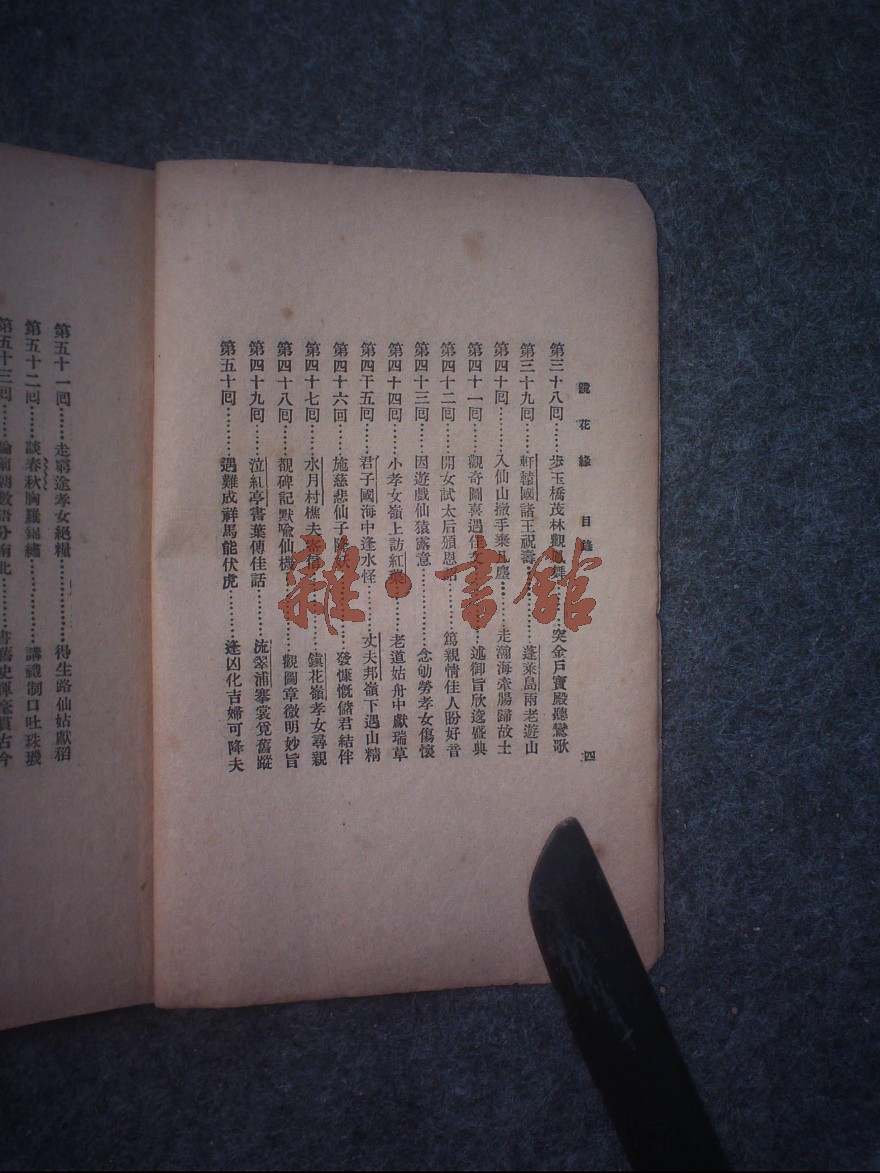 鏡花緣 目錄
四
第三十八回……步玉橋茂林觀鳳舞……突金戶寶殿聽鸞歌
第三十九回……軒轅國諸王祝壽……蓬萊島兩老遊山
第四十回……入仙山撒手乘凡塵……走瀚海牽腸歸故土
第四十一回……觀奇圖喜遇佳……述御旨欣逢盛典
第四十二回……開女試太后頒恩詔……篤親情佳人盼好音
第四十三回……因遊戲仙猿露意……念劬勞孝女傷懷
第四十四回……小孝女嶺上訪紅蕖……老道姑舟中獻瑞草
第四干五回……君子國海中逢水怪……丈夫邦嶺下遇山精
第四十六回……施慈悲仙子降妖……發慷慨儲君結伴
第四十七回……水月村樵夫寄信……鏡花嶺孝女尋親
第四十八回……覩碑記默喻仙機……觀圖章微明妙旨
第四十九回……泣紅亭書葉傳佳話……流翠浦搴裳覓舊蹤
第五十回……遇難成祥馬能伏虎……逢凶化吉婦可降夫
第五十一回……走窮途孝女絕糧……得生路仙姑獻稻
第五十二回……談春秋胸羅錦繡……講禮制口吐珠璣
第五十三回……論前朝數語分南北……書舊史揮毫貫古今
雜·書館